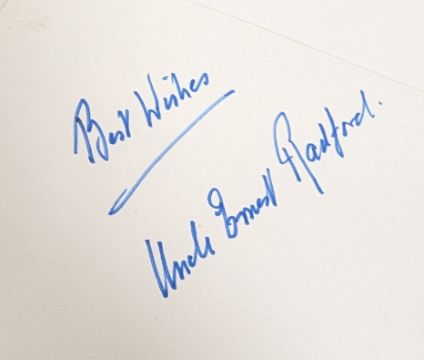 Best Wishes
Uncle Ernest Radford.